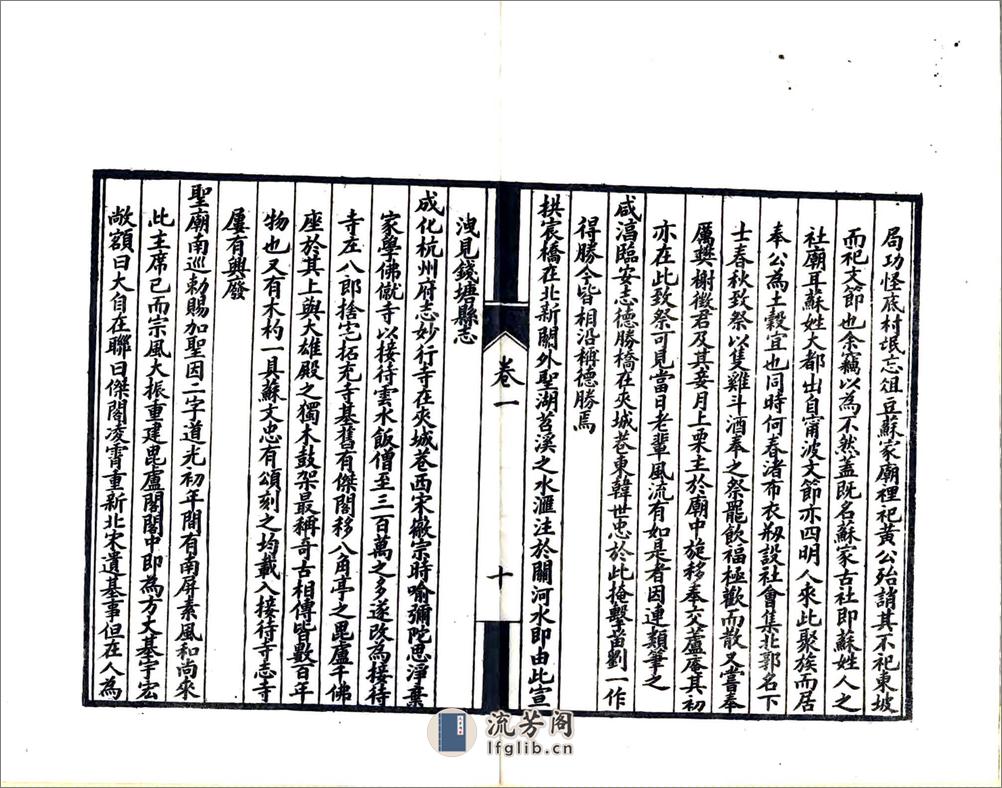 局功怪底村氓忘俎豆蘇家廟裡祀黃公殆誚其不祀東坡
而祀文節也余竊以為不然蓋既名蘇家古社即蘇姓人之
社廟耳蘇姓大都出自甯波文節亦四明人來此聚族而居
奉公為土穀宜也同時何春渚布衣剏設社會集北郭名下
士春秋致祭以隻雞斗酒奉之祭罷飲福極歡而散又嘗奉
厲樊榭徵君及其妾月上栗主於廟中旋移奉交蘆庵其初
亦在此致祭可見當日老輩風流有如是者因連類筆之
咸淳臨安志德勝橋在夾城巷東韓世忠於此掩擊苗劉一作
得勝今皆相沿稱德勝焉
拱宸橋在北新關外聖湖苕溪之水滙注於關河水即由此宣
卷一
十
洩見錢塘縣志
成化杭州府志妙行寺在夾城巷西宋徽宗時喻彌陀思淨棄
家學佛僦寺以接待雲水飯僧至三百萬之多遂改為接待
寺左八郎捨宅拓充寺基舊有傑閣移八角亭之毘盧千佛
座於其上與大雄殿之獨木鼓架最稱奇古相傳皆數百年
物也又有木杓一具蘇文忠有頌刻之均載入接待寺志寺
屢有興廢
聖廟南巡勅賜加聖因二字道光初年間有南屏素風和尚來
此主席已而宗風大振重建毘盧閣閣中即為方丈基宇宏
敞額曰大自在聯曰傑閣凌霄重新北宋遺基事但在人為
流芳阁
lfglib.cn